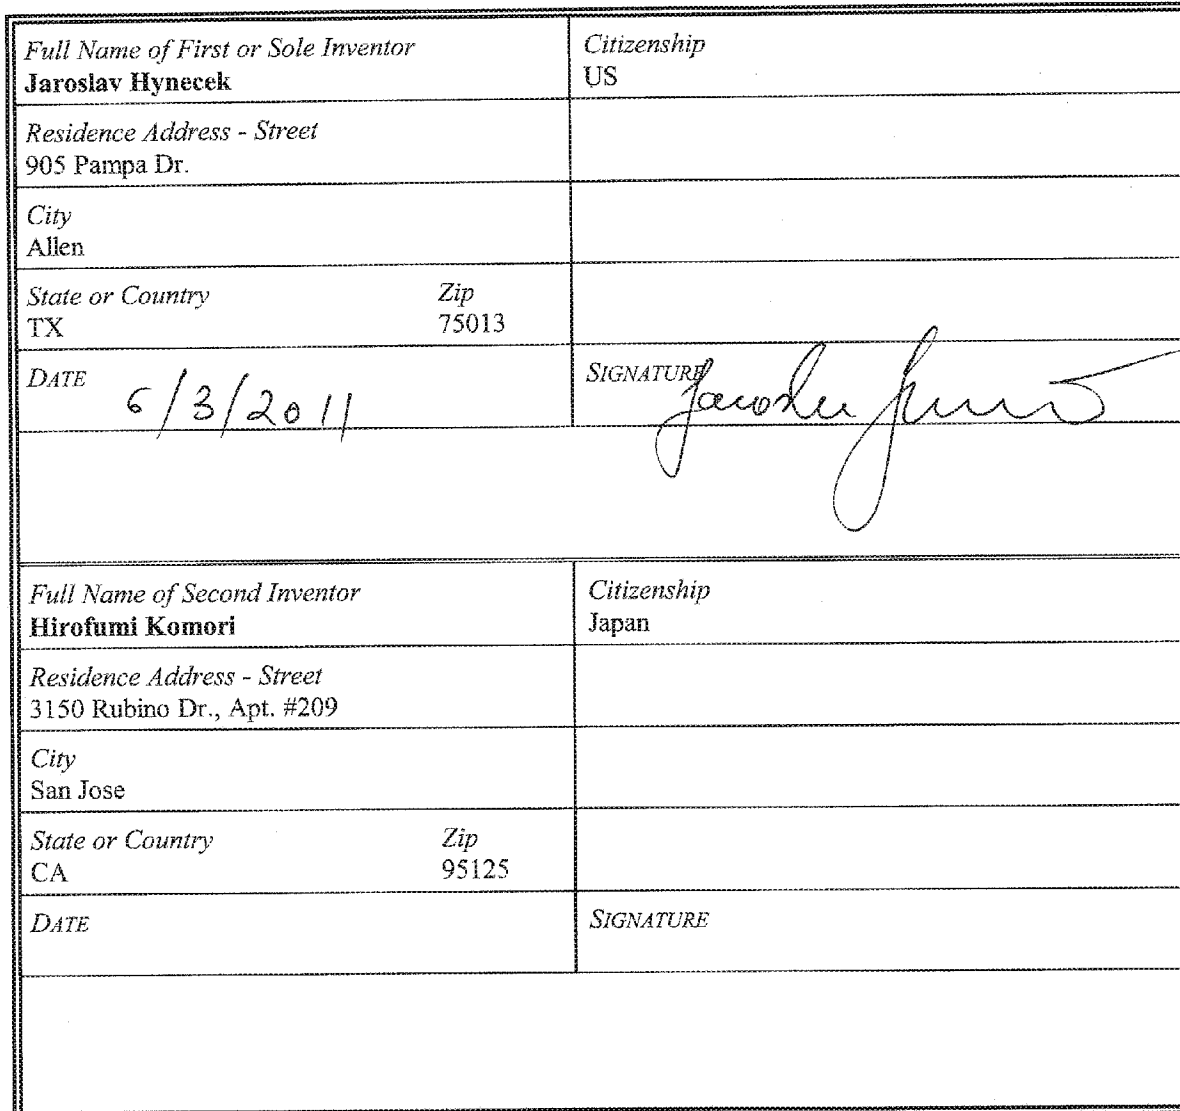 Full Name of First or Sole Inventor
Jaroslav Hynecek
Citizenship
US
Residence Address - Street
905 Pampa Dr.
City
Allen
State or Country Zip
TX 75013
DATE 6/3/2011
SIGNATURE
Full Name of Second Inventor
Hirofumi Komori
Citizenship
Japan
Residence Address - Street
3150 Rubino Dr., Apt. #209
City
San Jose
State or Country Zip
CA 95125
DATE
SIGNATURE